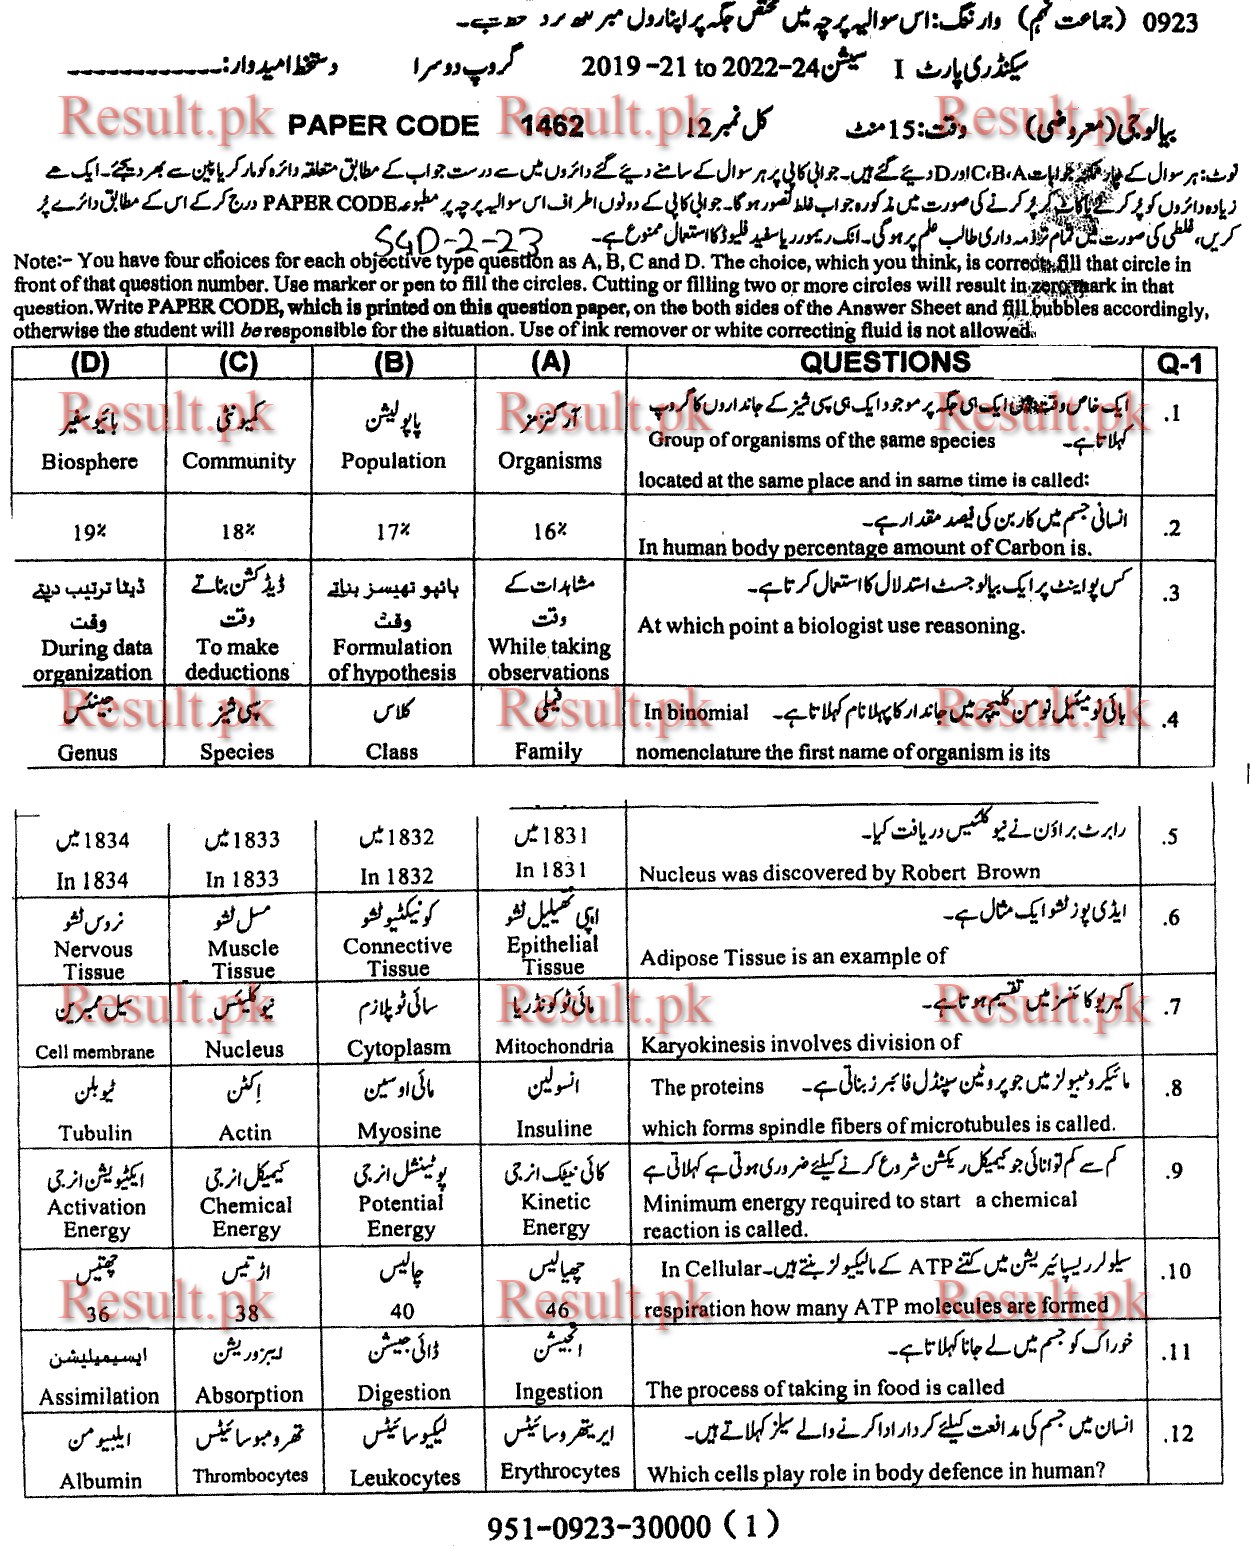 0923 (جماعت نہم) وارننگ: اس سوالیہ پرچہ میں مختص جگہ پر اپنا رول نمبر
سیکنڈری پارٹ I سیشن 2019-21 to 2022-24 گروپ دوسرا دستخط امیدوار: ------------
بیالوجی (معروضی) وقت: 15 منٹ کل نمبر 12 PAPER CODE 1462
نوٹ: ہر سوال کے چار جوابات A، B، C اور D دیئے گئے ہیں۔ جوابی کاپی پر ہر سوال کے سامنے دیئے گئے دائروں میں سے درست جواب کے مطابق متعلقہ دائرہ کو مارکر یا پین سے بھر دیجئے۔ ایک سے
زیادہ دائروں کو پُر کرنے یا کاٹ کر پُر کرنے کی صورت میں مذکورہ جواب غلط تصور ہوگا۔ جوابی کاپی کے دونوں اطراف اس سوالیہ پرچہ پر مطبوعہ PAPER CODE درج کرکے اس کے مطابق دائرے پُر
کریں، غلطی کی صورت میں تمام تر ذمہ داری طالب علم پر ہوگی۔ انک ریموور یا سفید فلیوڈ کا استعمال ممنوع ہے۔ SGD-2-23
Note:- You have four choices for each objective type question as A, B, C and D. The choice, which you think, is correct; fill that circle in
front of that question number. Use marker or pen to fill the circles. Cutting or filling two or more circles will result in zero mark in that
question.Write PAPER CODE, which is printed on this question paper, on the both sides of the Answer Sheet and fill bubbles accordingly,
otherwise the student will be responsible for the situation. Use of ink remover or white correcting fluid is not allowed.
(D) (C) (B) (A) QUESTIONS Q-1
بائیوسفیر کمیونٹی پاپولیشن آرگنزمز ایک خاص وقت میں ایک ہی جگہ پر موجود ایک ہی سپی شیز کے جانداروں کا گروپ .1
کہلاتا ہے۔ Group of organisms of the same species
Biosphere Community Population Organisms
located at the same place and in same time is called:
انسانی جسم میں کاربن کی فیصد مقدار ہے۔ .2
19% 18% 17% 16%
In human body percentage amount of Carbon is.
ڈیٹا ترتیب دیتے ڈیڈکشن بناتے ہائپوتھیسز بناتے مشاہدات کے کس پوائنٹ پر ایک بیالوجسٹ استدلال کا استعمال کرتا ہے۔ .3
وقت وقت وقت وقت At which point a biologist use reasoning.
During data To make Formulation While taking
organization deductions of hypothesis observations
جینئس سپی شیز کلاس فیملی بائی نومئیل نومن کلیچر میں جاندار کا پہلا نام کہلاتا ہے۔ In binomial .4
Genus Species Class Family nomenclature the first name of organism is its
1834 میں 1833 میں 1832 میں 1831 میں رابرٹ براؤن نے نیوکلئیس دریافت کیا۔ .5
In 1834 In 1833 In 1832 In 1831 Nucleus was discovered by Robert Brown
نروس ٹشو مسل ٹشو کونیکٹیو ٹشو اپی تھیلیل ٹشو ایڈی پوز ٹشو ایک مثال ہے۔ .6
Nervous Muscle Connective Epithelial
Tissue Tissue Tissue Tissue Adipose Tissue is an example of
سیل ممبرین نیوکلیئس سائٹوپلازم مائٹوکونڈریا کیریوکائنسز میں تقسیم ہوتا ہے۔ .7
Cell membrane Nucleus Cytoplasm Mitochondria Karyokinesis involves division of
ٹیوبلن اِکٹن مائی اوسین انسولین مائیکروٹیبولز میں جو پروٹین سپنڈل فائبرز بناتی ہے۔ The proteins .8
Tubulin Actin Myosine Insuline which forms spindle fibers of microtubules is called.
ایکٹیویشن انرجی کیمیکل انرجی پوٹینشل انرجی کائی نیٹک انرجی کم سے کم توانائی جو کیمیکل ریکشن شروع کرنے کیلئے ضروری ہوتی ہے کہلاتی ہے .9
Activation Chemical Potential Kinetic Minimum energy required to start a chemical
Energy Energy Energy Energy reaction is called.
چھتیس اڑتیس چالیس چھیالیس سیلولر ریسپائیریشن میں کتنے ATP کے مالیکیولز بنتے ہیں۔ In Cellular .10
36 38 40 46 respiration how many ATP molecules are formed
ایسیمیلیشن ایبزوربشن ڈائی جیشن انجیشن خوراک کو جسم میں لے جانا کہلاتا ہے۔ .11
Assimilation Absorption Digestion Ingestion The process of taking in food is called
ایلبیومن تھرومبوسائیٹس لیکوسائیٹس ایریتھروسائیٹس انسان میں جسم کی مدافعت کیلئے کردار ادا کرنے والے سیلز کہلاتے ہیں۔ .12
Albumin Thrombocytes Leukocytes Erythrocytes Which cells play role in body defence in human?
951-0923-30000 (1)
Result.pk Result.pk Result.pk
Result.pk Result.pk Result.pk
Result.pk Result.pk Result.pk
Result.pk Result.pk Result.pk
Result.pk Result.pk Result.pk